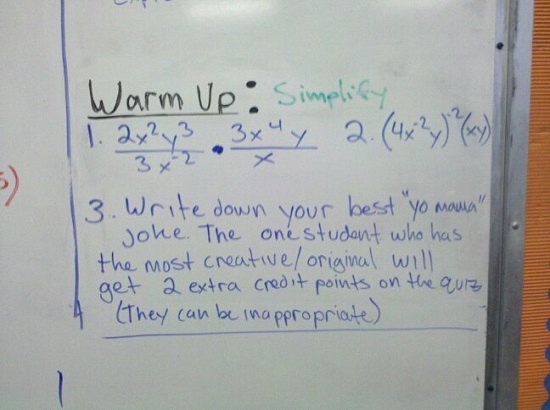 Warm Up: Simplify
1. 2x²y³/3x⁻² • 3x⁴y/x 2. (4x⁻²y)⁻²(xy)
3. Write down your best "yo mama"
joke. The one student who has
the most creative/original will
get 2 extra credit points on the quiz
(They can be inappropriate)